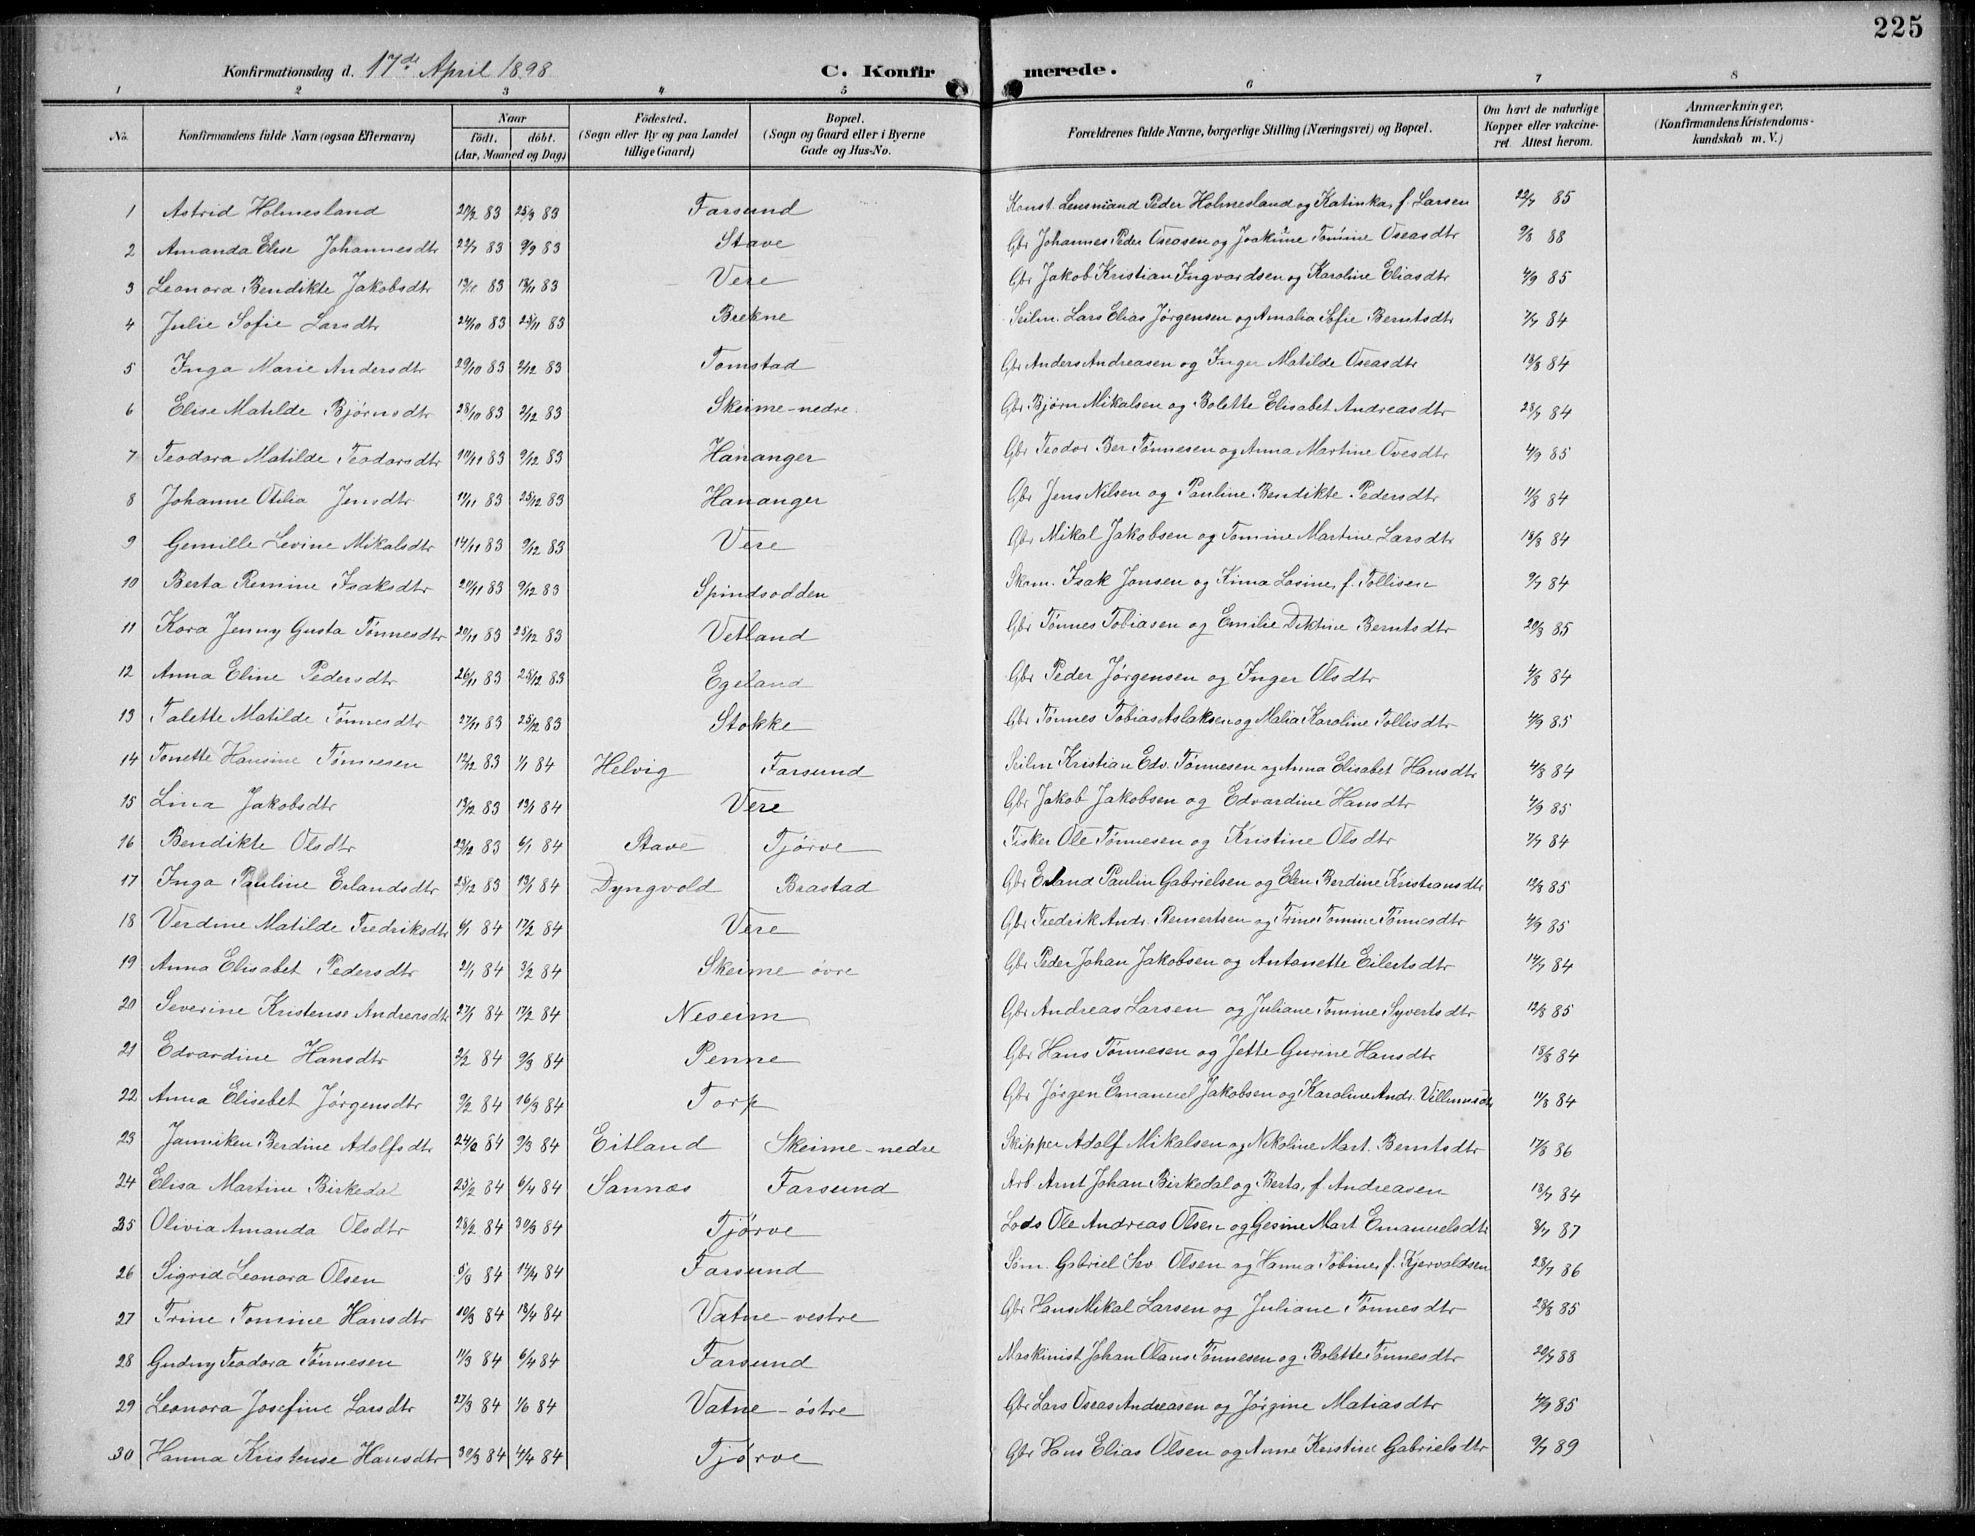 225
Konfirmationsdag d. 17de April 1898 C. Konfirmerede.
1 2 3 4 5 6 7 8
No. Konfirmandens fulde Navn (ogsaa Efternavn) Naar födt. döbt. (Aar, Maaned og Dag) Födested. (Sogn eller By og paa Landet tillige Gaard) Bopæl. (Sogn og Gaard eller i Byerne Gade og Hus-No. Forældrenes fulde Navne, borgerlige Stilling (Næringsvei) og Bopæl. Om havt de naturlige Kopper eller vakcineret. Attest herom. Anmærkninger, (Konfirmandens Kristendomskundskab m. V.)
1 Astrid Holmesland 83 25/3 83 Farsund Konst. Lensmand Peder Holmesland og Katinka, f. Larsen 22/7 85
2 Amanda Elise Johannesdtr 83 9/9 83 Stave Gbr Johannes Peder Oseasen og Joakime Tomine Oseasdtr 9/8 88
3 Leonora Bendikte Jakobsdtr 83 83 Vere Gbr Jakob Kristian Ingvardsen og Karoline Eliasdtr 4/9 85
4 Julie Sofie Larsdtr 24/10 83 25/11 83 Brekne Seilm. Lars Elias Jørgensen og Amalia Sofie Berntsdtr 7/7 84
5 Inga Marie Andersdtr 29/10 83 2/12 83 Tomstad Gbr Anders Andreasen og Inger Matilde Oseasdtr 13/8 84
6 Elise Matilde Bjørnsdtr 28/10 83 2/12 83 Skeime-nedre Gbr Bjørn Mikalsen og Bolette Elisabet Andreasdtr 28/7 84
7 Teodora Matilde Teodorsdtr 10/11 83 9/12 83 Hananger Gbr Teodor Ber Tønnesen og Anna Martine Ovesdtr 4/9 85
8 Johanne Otilia Jensdtr 11/11 83 25/12 83 Hananger Gbr Jens Nilsen og Pauline Bendikte Pedersdtr 11/8 84
9 Gemille Levine Mikalsdtr 14/11 83 9/12 83 Vere Gbr Mikal Jakobsen og Tomine Martine Larsdtr 13/8 84
10 Berta Remine Isaksdtr 83 9/12 83 Spindsodden Skom. Isak Jansen og Kima Losine, f. Tollisen 9/7 84
11 Kora Jenny Gusta Tønnesdtr 83 25/12 83 Vetland Gbr Tønnes Tobiasen og Emilie Diktine Berntsdtr 85
12 Anna Eline Pedersdtr 26/11 83 25/12 83 Egeland Gbr Peder Jørgensen og Inger Olsdtr 4/8 84
13 Talette Matilde Tønnesdtr 27/11 83 25/12 83 Stokke Gbr Tønnes Tobias Aslaksen og Malia Karoline Tollisdtr 4/9 85
14 Tonette Hansine Tønnesen 12/12 83 1/1 84 Helvig Farsund Seilm Kristian Edv. Tønnesen og Anna Elisabet Hansdtr 4/8 84
15 Lina Jakobsdtr 13/12 83 13/1 84 Vere Gbr Jakob Jakobsen og Edvardine Hansdtr 4/9 85
16 Bendikte Olsdtr 83 6/1 84 Stave Tjørve Fisker Ole Tønnesen og Kristine Olsdtr 7/7 84
17 Inga Pauline Erlandsdtr 28/12 83 13/1 84 Dyngvold Brastad Gbr Erland Paulin Gabrielsen og Elen Berdine Kristiansdtr 12/8 85
18 Verdine Matilde Fredriksdtr 84 17/2 84 Vere Gbr Fredrik Andr. Reinertsen og Trine Tomine Tønnesdtr 4/9 85
19 Anna Elisabet Pedersdtr 84 3/2 84 Skeime-øvre Gbr Peder Johan Jakobsen og Antonette Eilertsdtr 14/7 84
20 Severine Kristense Andreasdtr 27/1 84 17/2 84 Neseim Gbr Andreas Larsen og Juliane Tomine Syvertsdtr 12/8 85
21 Edvardine Hansdtr 2/2 84 9/3 84 Penne Gbr Hans Tønnesen og Jette Gurine Hansdtr 13/8 84
22 Anna Elisabet Jørgensdtr 9/2 84 16/3 84 Torp Gbr Jørgen Emanuel Jakobsen og Karoline Andr. Villumsdtr 11/8 84
23 Janniken Berdine Adolfsdtr 24/2 84 9/3 84 Eitland Skeime-nedre Skipper Adolf Mikalsen og Nikoline Mart. Berntsdtr 17/8 86
24 Elisa Martine Birkedal 25/2 84 6/4 84 Sannæs Farsund Arb. Arnt Johan Birkedal og Berta, f. Andreasen 13/7 84
25 Olivia Amanda Olsdtr 28/2 84 30/3 84 Tjørve Lods Ole Andreas Olsen og Gesine Mart Emanuelsdtr 3/7 87
26 Sigrid Leonora Olsen 5/3 84 14/4 84 Farsund Søm. Gabriel Sev. Olsen og Hanna Tobine, f. Kjervaldsen 28/7 86
27 Trine Tomine Hansdtr 10/3 84 13/4 84 Vatne-vestre Gbr Hans Mikal Larsen og Juliane Tønnesdtr 28/8 85
28 Gudny Teodora Tønnesen 11/3 84 6/4 84 Farsund Maskinist Johan Olaus Tønnesen og Bolette Tønnesdtr 20/7 88
29 Leonora Josefine Larsdtr 27/3 84 1/6 84 Vatne-østre Gbr Lars Oseas Andreasen og Jørgine Matiasdtr 85
30 Hanna Kristense Hansdtr 30/3 84 4/4 84 Tjørve Gbr Hans Elias Olsen og Anne Kristine Gabrielsdtr 9/7 89